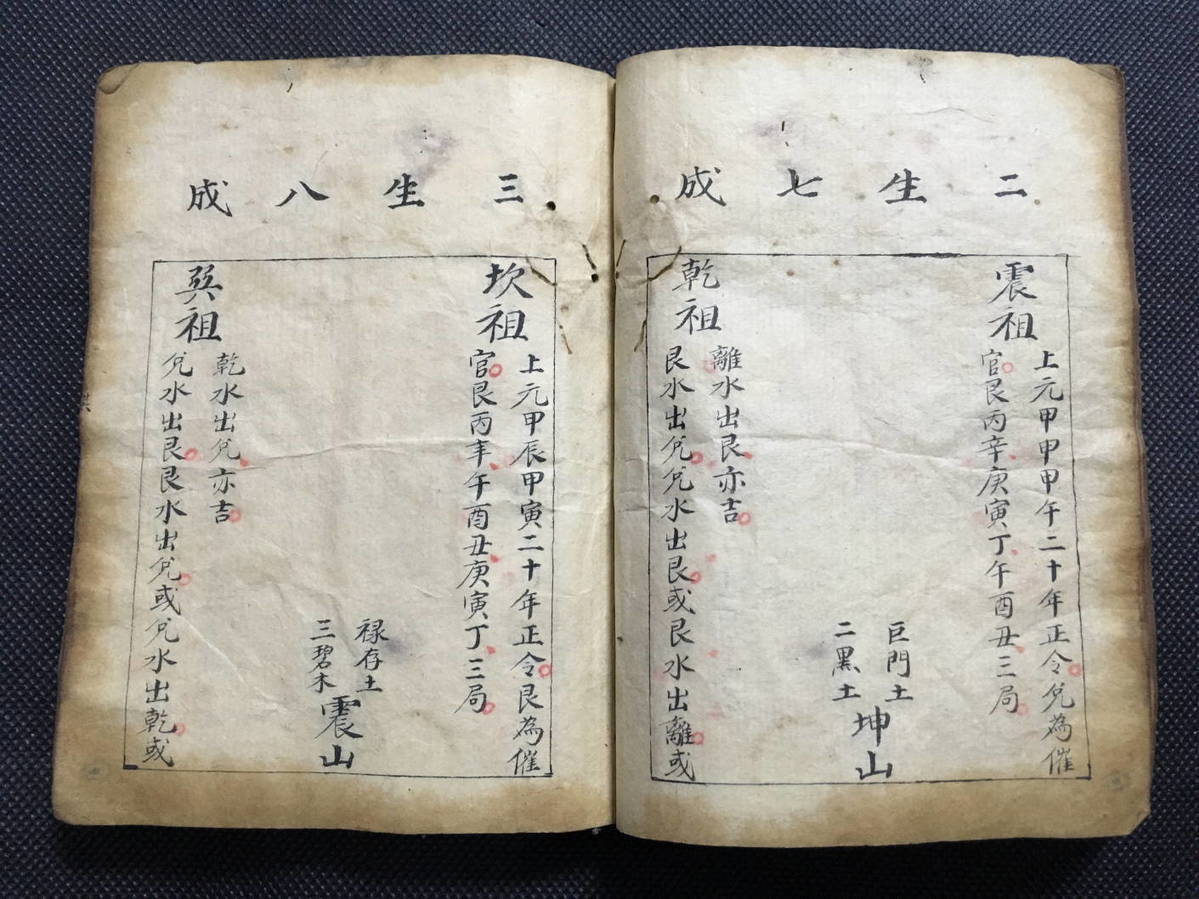 二生七成
震祖
上元甲甲甲午二十年正令兌為催
官艮丙辛庚寅丁午酉丑三局
巨門土
二黑土
坤山
乾祖
艮水出兌兌水出艮或艮水出離或
離水出艮亦吉
三生八成
坎祖
上元甲辰甲寅二十年正令艮為催
官艮丙辛午酉丑庚寅丁三局
禄存土
三碧木
震山
巽祖
兌水出艮艮水出兌或兌水出乾或
乾水出兌亦吉